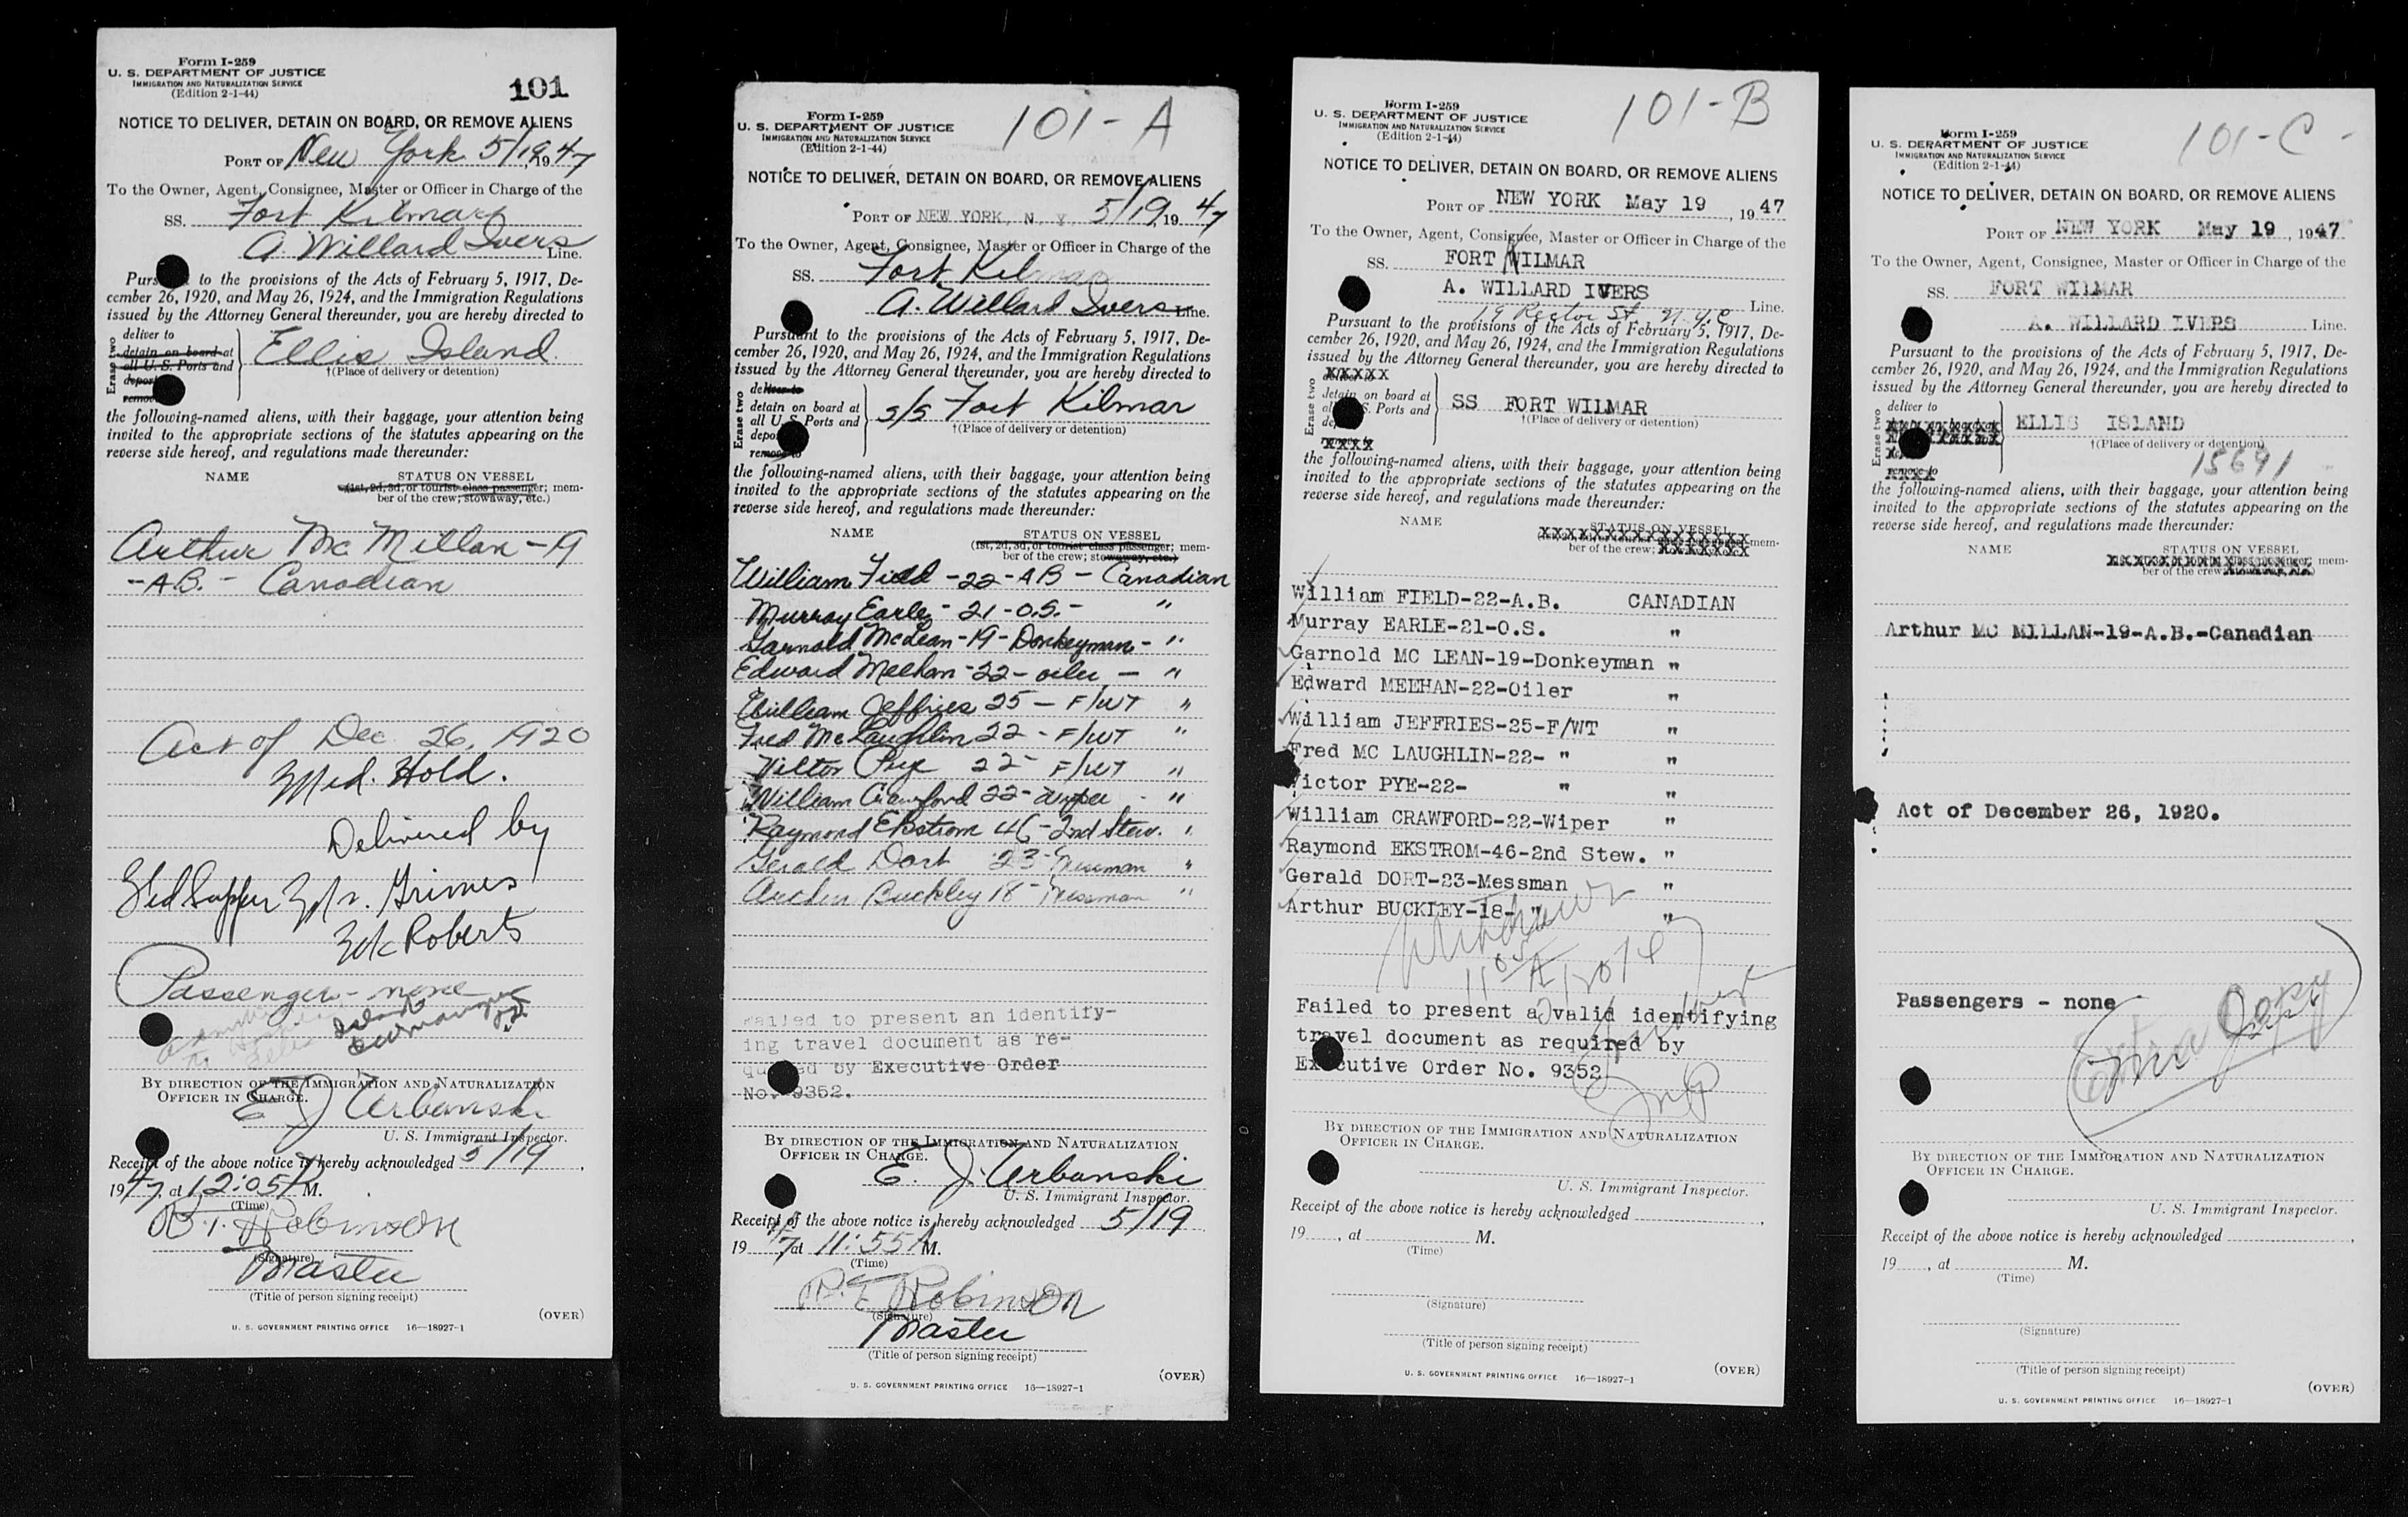 Form I-259
U. S. DEPARTMENT OF JUSTICE
IMMIGRATION AND NATURALIZATION SERVICE
(Edition 2-1-44)
101
NOTICE TO DELIVER, DETAIN ON BOARD, OR REMOVE ALIENS
PORT OF New York 5/19, 1947
To the Owner, Agent, Consignee, Master or Officer in Charge of the
SS. Fort Kilmar
A. Willard Ivers Line.
to the provisions of the Acts of February 5, 1917, De-
cember 26, 1920, and May 26, 1924, and the Immigration Regulations
issued by the Attorney General thereunder, you are hereby directed to
Erase two
deliver to
detain on board at
all U. S. Ports and
Ellis Island
†(Place of delivery or detention)
the following-named aliens, with their baggage, your attention being
invited to the appropriate sections of the statutes appearing on the
reverse side hereof, and regulations made thereunder:
NAME STATUS ON VESSEL
(1st, 2d, 3d, or tourist class passenger; mem-
ber of the crew; stowaway, etc.)
Arthur Mc Millan - 19
- A.B. - Canadian
Act of Dec. 26, 1920
Med. Hold.
Delivered by
Grimes
Roberts
Passengers - none
Island
BY DIRECTION OF THE IMMIGRATION AND NATURALIZATION
OFFICER IN CHARGE.
E J Urbanski
U. S. Immigrant Inspector.
Receipt of the above notice is hereby acknowledged 5/19,
1947, at 12:05 P M.
(Time)
Robinson
(Signature)
Master
(Title of person signing receipt)
(OVER)
U. S. GOVERNMENT PRINTING OFFICE 16—18927-1
Form I-259
U. S. DEPARTMENT OF JUSTICE
IMMIGRATION AND NATURALIZATION SERVICE
(Edition 2-1-44)
101-A
NOTICE TO DELIVER, DETAIN ON BOARD, OR REMOVE ALIENS
PORT OF NEW YORK, N. Y. 5/19, 1947
To the Owner, Agent, Consignee, Master or Officer in Charge of the
SS. Fort Kilmar
A. Willard Ivers Line.
Pursuant to the provisions of the Acts of February 5, 1917, De-
cember 26, 1920, and May 26, 1924, and the Immigration Regulations
issued by the Attorney General thereunder, you are hereby directed to
Erase two
deliver to
detain on board at
all U. S. Ports and
remove to
s/s Fort Kilmar
†(Place of delivery or detention)
the following-named aliens, with their baggage, your attention being
invited to the appropriate sections of the statutes appearing on the
reverse side hereof, and regulations made thereunder:
NAME STATUS ON VESSEL
(1st, 2d, 3d, or tourist class passenger; mem-
ber of the crew; stowaway, etc.)
William Field - 22 - AB - Canadian
Murray Earle - 21 - O.S. - "
Garnold McLean - 19 - Donkeyman - "
Edward Meehan - 22 - oiler - "
William Jeffries 25 - F/WT "
Fred McLaughlin 22 - F/WT "
Victor Pye 22 - F/WT "
William Crawford 22 - Wiper - "
Raymond Ekstrom 46 - 2nd Stew. "
Gerald Dort 23 - Messman "
Arthur Buckley 18 - Messman "
Failed to present an identify-
ing travel document as re-
quired by Executive Order
No. 9352.
BY DIRECTION OF THE IMMIGRATION AND NATURALIZATION
OFFICER IN CHARGE.
E. J. Urbanski
U. S. Immigrant Inspector.
Receipt of the above notice is hereby acknowledged 5/19
1947 at 11:55 A M.
(Time)
Robinson
(Signature)
Master
(Title of person signing receipt)
(OVER)
U. S. GOVERNMENT PRINTING OFFICE 16—18927-1
Form I-259
U. S. DEPARTMENT OF JUSTICE
IMMIGRATION AND NATURALIZATION SERVICE
(Edition 2-1-44)
101-B
NOTICE TO DELIVER, DETAIN ON BOARD, OR REMOVE ALIENS
PORT OF NEW YORK May 19, 1947
To the Owner, Agent, Consignee, Master or Officer in Charge of the
SS. FORT KILMAR
A. WILLARD IVERS Line.
19 Rector St. N.Y.C
Pursuant to the provisions of the Acts of February 5, 1917, De-
cember 26, 1920, and May 26, 1924, and the Immigration Regulations
issued by the Attorney General thereunder, you are hereby directed to
Erase two
XXXXX
detain on board at
all U. S. Ports and
XXXX
SS FORT WILMAR
†(Place of delivery or detention)
the following-named aliens, with their baggage, your attention being
invited to the appropriate sections of the statutes appearing on the
reverse side hereof, and regulations made thereunder:
NAME STATUS ON VESSEL
XXXXXXXXXXXXXXXXXX mem-
ber of the crew; XXXXXXXX
William FIELD-22-A.B. CANADIAN
Murray EARLE-21-O.S. "
Garnold MC LEAN-19-Donkeyman "
Edward MEEHAN-22-Oiler "
William JEFFRIES-25-F/WT "
Fred MC LAUGHLIN-22- " "
Victor PYE-22- " "
William CRAWFORD-22-Wiper "
Raymond EKSTROM-46-2nd Stew. "
Gerald DORT-23-Messman "
Arthur BUCKLEY-18- " "
Failed to present a valid identifying
travel document as required by
Executive Order No. 9352
BY DIRECTION OF THE IMMIGRATION AND NATURALIZATION
OFFICER IN CHARGE.
U. S. Immigrant Inspector.
Receipt of the above notice is hereby acknowledged
19 , at M.
(Time)
(Signature)
(Title of person signing receipt)
(OVER)
U. S. GOVERNMENT PRINTING OFFICE 16—18927-1
Form I-259
U. S. DEPARTMENT OF JUSTICE
IMMIGRATION AND NATURALIZATION SERVICE
(Edition 2-1-44)
101-C
NOTICE TO DELIVER, DETAIN ON BOARD, OR REMOVE ALIENS
PORT OF NEW YORK May 19, 1947
To the Owner, Agent, Consignee, Master or Officer in Charge of the
SS. FORT WILMAR
A. WILLARD IVERS Line.
Pursuant to the provisions of the Acts of February 5, 1917, De-
cember 26, 1920, and May 26, 1924, and the Immigration Regulations
issued by the Attorney General thereunder, you are hereby directed to
Erase two
deliver to
remove to
ELLIS ISLAND
†(Place of delivery or detention)
15691
the following-named aliens, with their baggage, your attention being
invited to the appropriate sections of the statutes appearing on the
reverse side hereof, and regulations made thereunder:
NAME STATUS ON VESSEL
mem-
ber of the crew;
Arthur MC MILLAN-19-A.B.-Canadian
Act of December 26, 1920.
Passengers - none
Extra Copy
BY DIRECTION OF THE IMMIGRATION AND NATURALIZATION
OFFICER IN CHARGE.
U. S. Immigrant Inspector.
Receipt of the above notice is hereby acknowledged
19 , at M.
(Time)
(Signature)
(Title of person signing receipt)
(OVER)
U. S. GOVERNMENT PRINTING OFFICE 16—18927-1